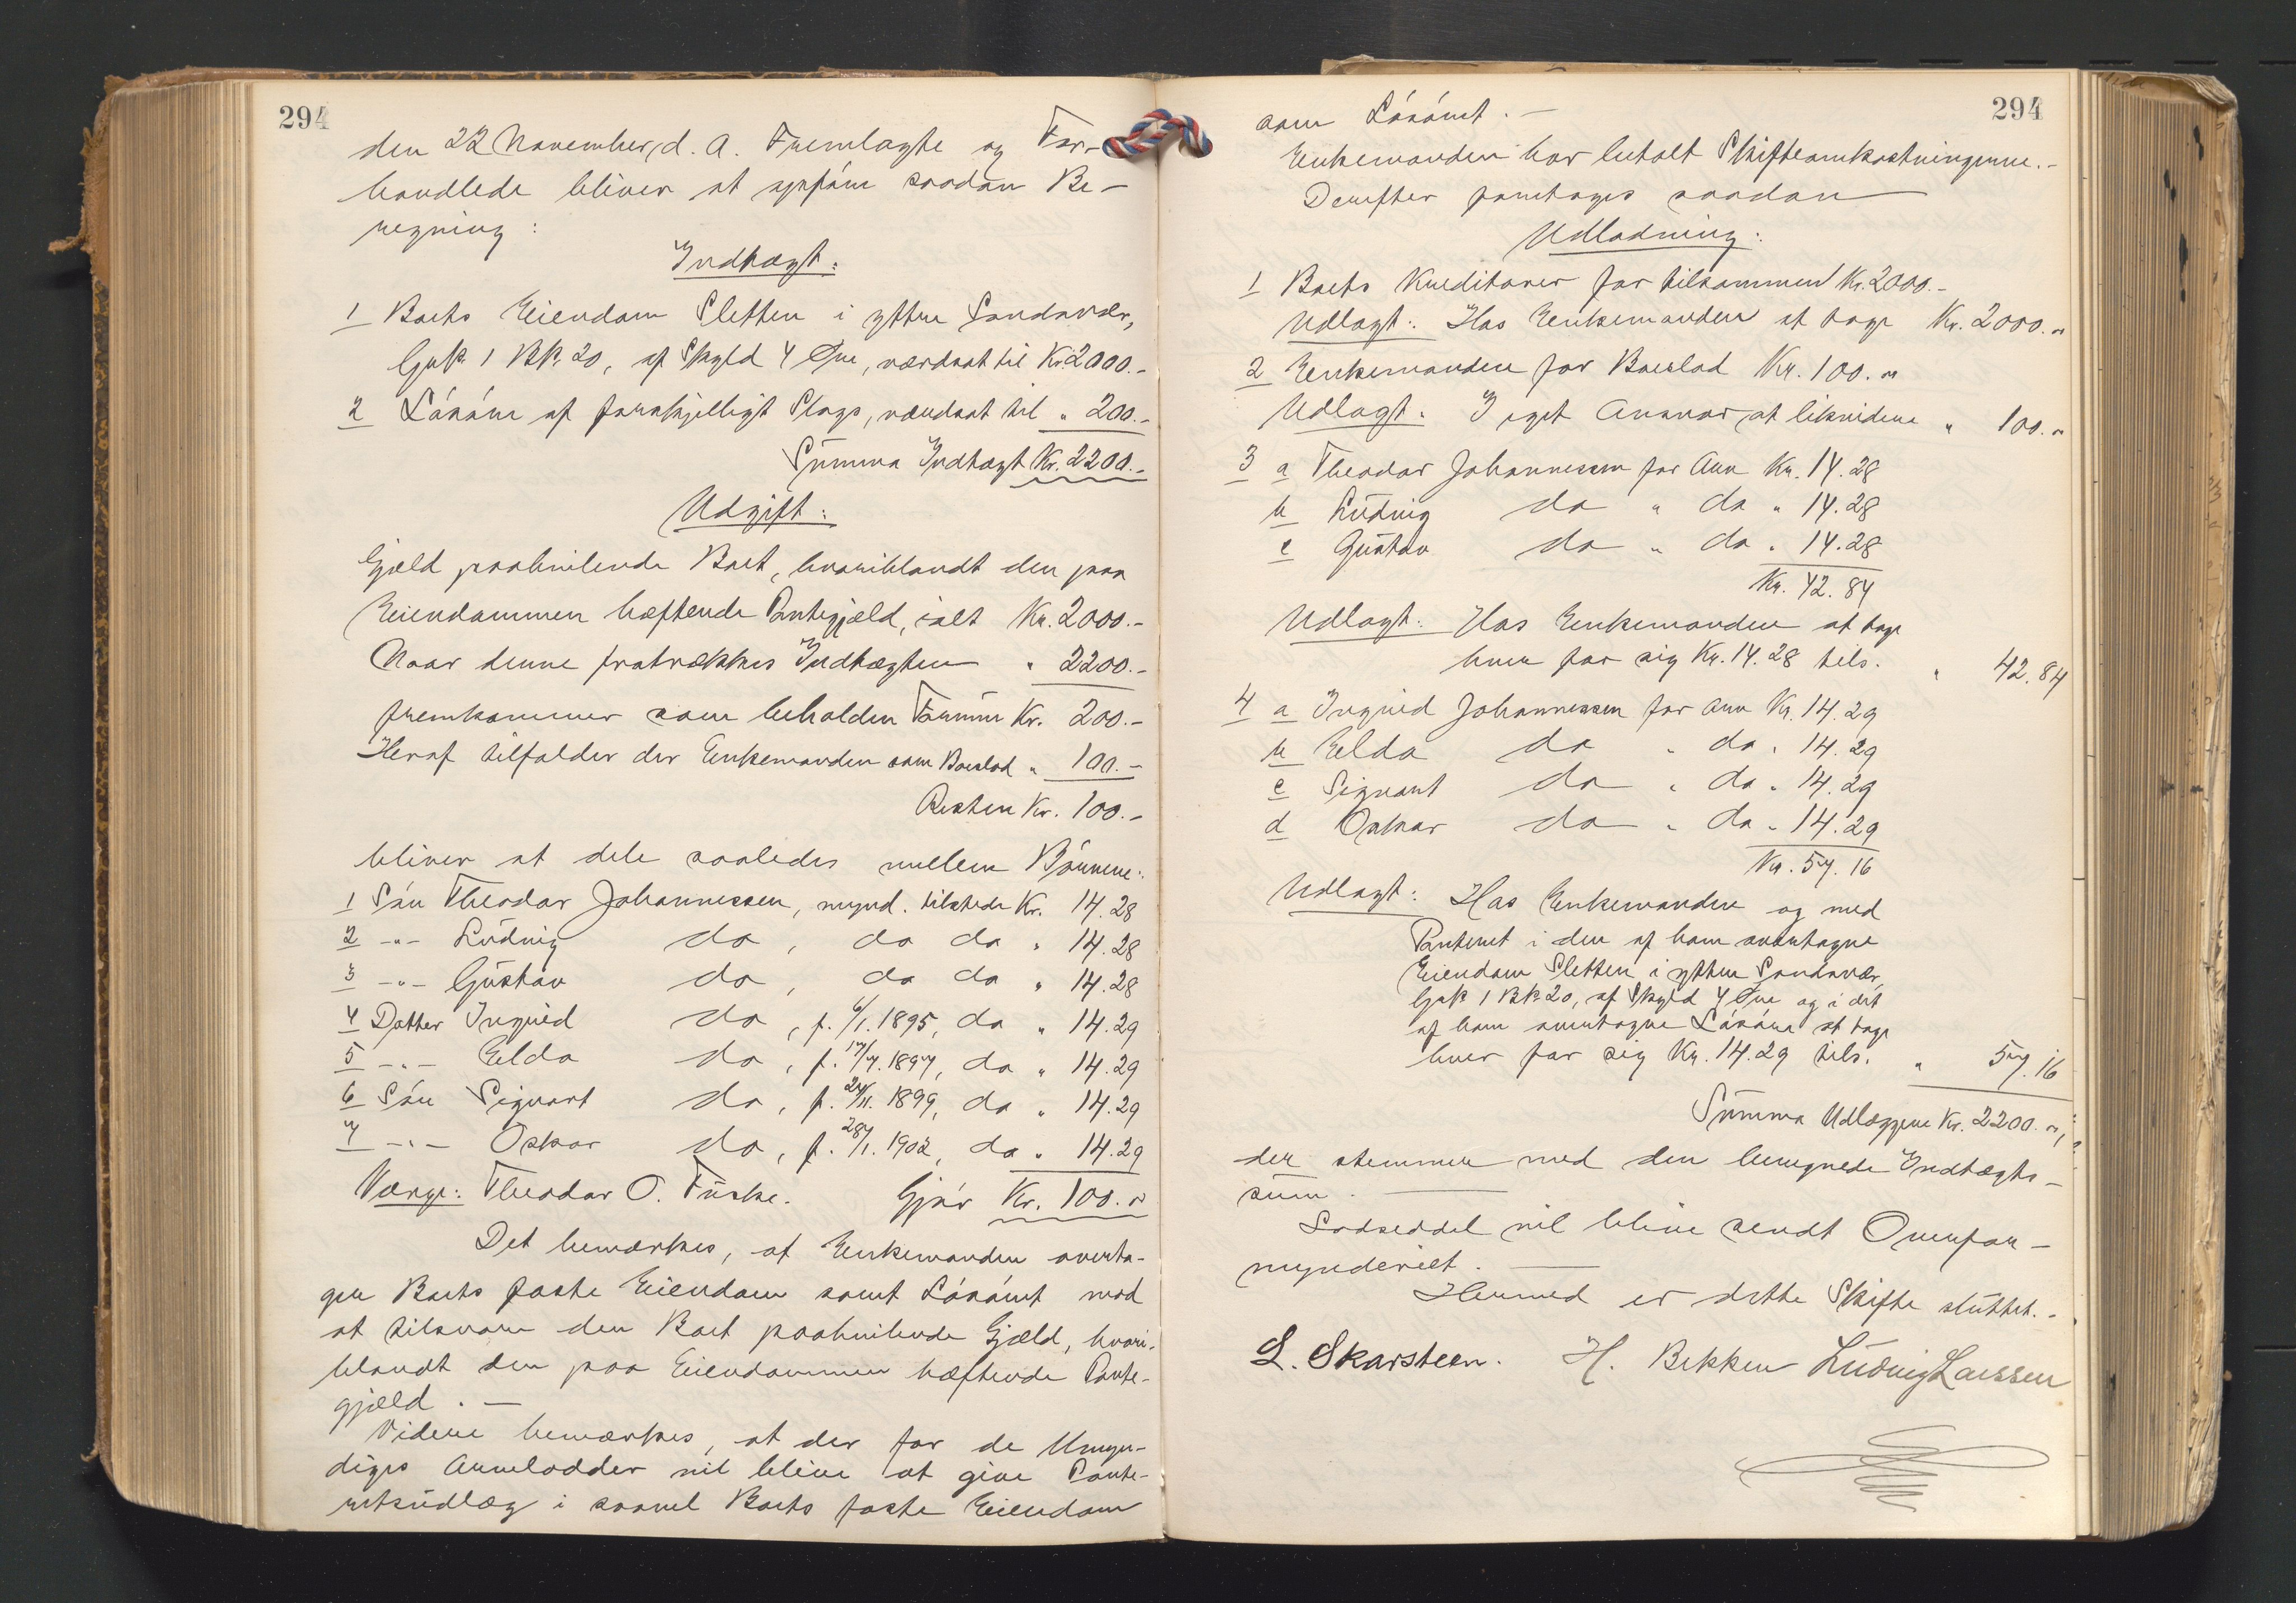 294
den 22 November d. A. Fremlagte og For-
handlede bliver at opføre saadan Be-
regning:
Indtægt:
1 Boets Eiendom Sletten i yttre Sandsvær,
Gn№ 1 B№ 20, af Skyld 4 Øre, værdsat til Kr. 2000.-
2 Løsøre af forskjelligt Slags, værdsat til " 200.-
Summa Indtægt Kr. 2200.-
Udgift:
Gjæld paahvilende Boet, hvoriblandt den paa
Eiendommen hæftende Pantegjæld, ialt Kr. 2000.-
Naar denne fratrækkes Indtægten " 2200.-
fremkommer som beholden Formue Kr. 200.-
Heraf tilfalder der Enkemanden som Boeslod " 100.-
Resten Kr. 100.-
bliver at dele saaledes mellem Børnene:
1 Søn Theodor Johannessen, mynd. tilstede Kr. 14.28
2 -"- Ludvig do, do do " 14.28
3 -"- Gustav do, do do " 14.28
4 Datter Ingrid do, f. 6/1. 1895, do " 14.29
5 -"- Elda do, f. 17/7. 1897, do " 14.29
6 Søn Sigvart do, f. 24/11. 1899, do " 14.29
7 -"- Oskar do, f. 28/1. 1902, do " 14.29
Værge: Theodor O. Fuske. Gjør Kr. 100.-
Det bemærkes, at Enkemanden overta-
ger Boets faste Eiendom samt Løsøret mod
at tilsvare den Boet paahvilende Gjæld, hvori-
blandt den paa Eiendommen hæftende Pante-
gjæld. -
Videre bemærkes, at der for de Umyn-
diges Arvelodder vil blive at give Pante-
retsudlæg i saavel Boets faste Eiendom
294
som Løsøret. -
Enkemanden har betalt Skifteomkostningerne. -
Derefter foretages saadan
Udlodning:
1 Boets Kreditorer for tilsammen Kr. 2000.-
Udlagt: Hos Enkemanden at tage Kr. 2000.-
2 Enkemanden for Boeslod Kr. 100.-
Udlagt: I eget Ansvar at likvidere " 100.-
3 a Theodor Johannessen for Arv Kr. 14.28
b Ludvig do " do " 14.28
c Gustav do " do " 14.28
Kr. 42.84
Udlagt: Hos Enkemanden at tage
hver for sig Kr. 14.28 tils. " 42.84
4 a Ingrid Johannessen for Arv Kr. 14.29
b Elda do " do " 14.29
c Sigvart do " do " 14.29
d Oskar do " do " 14.29
Kr. 57.16
Udlagt: Hos Enkemanden og med
Panteret i den af ham overtagne
Eiendom Sletten i yttre Sandsvær,
Gn№ 1 B№ 20, af Skyld 4 Øre og i det
af ham overtagne Løsøre at tage
hver for sig Kr. 14.29 tils. " 57.16
Summa Udlæggene Kr. 2200.-,
der stemmer med den beregnede Indtægts-
sum.
Lodseddel vil blive sendt Overfor-
mynderiet.
Hermed er dette Skifte sluttet. -
L. Skarsteen. H. Bekken Ludvig Larssen